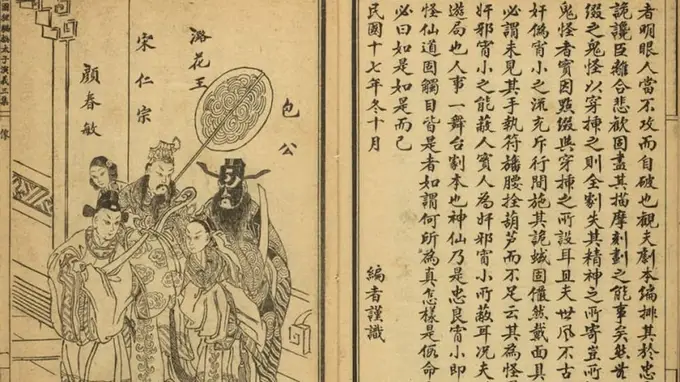 者明眼人當不攻而自破也觀夫劇本編排其於忠
詭讒臣離合悲歡固盡其描摩刻劃之能事矣然
綴之鬼怪以穿揷之則全劇失其精神之所寄豈所
鬼怪者實因點綴與穿揷之所設耳且夫世風不古
奸偽宵小之流充斥行間施其詭蜮固儼然戴面具
必謂未見其手執符旛腰拴葫芦而不足云其為怪
奸邪宵小之能蔽人實人為奸邪宵小所蔽耳況夫
遊局也人事一舞台劇本也神仙乃是忠良宵小即
怪仙道固觸目皆是者如謂何所為真怎樣是假命
必曰如是如是而已
民國十七年冬十月
編者謹識
包公
潞花王
宋仁宗
顏春敏
太子演義三集
像